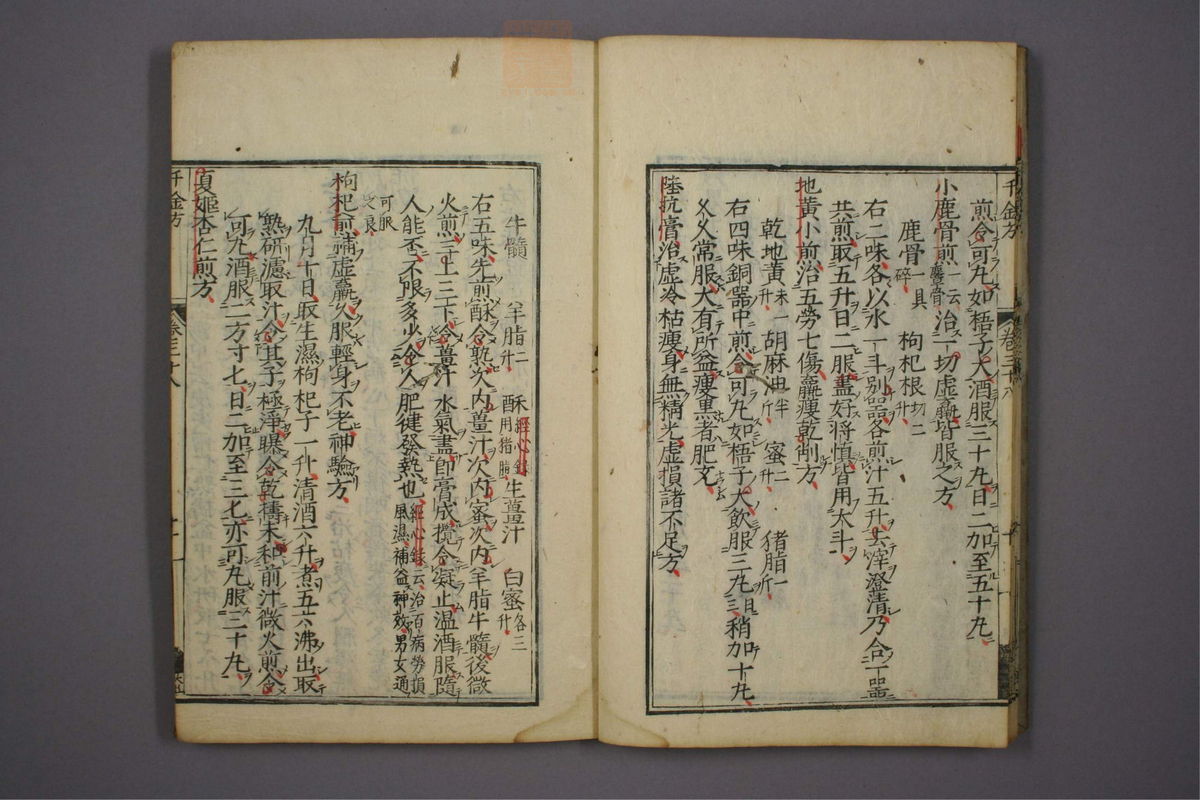 千金方 卷三十八
煎令可丸如梧子大酒服三十丸日二加至五十丸
小鹿骨煎一云麞骨治一切虛羸皆服之方
鹿骨一具碎 枸杞根切二升
右二味各以水一斗別器各煎汁五升去滓澄清乃合一器
共煎取五升日二服盡好將慎皆用大斗
地黃小煎治五勞七傷羸瘦乾削方
乾地黃末一升 胡麻油半斤 蜜二升 猪脂一斤
右四味銅器中煎令可丸如梧子大飲服三丸日三稍加十丸
久久常服大有所益瘦黑者肥充
陸抗膏治虛冷枯瘦身無精光虛損諸不足方
牛髓 羊脂二升 酥經心錄用猪脂 生薑汁 白蜜各三升
右五味先煎酥令熟次內薑汁次內蜜次內羊脂牛髓後微
火煎三上三下令薑汁水氣盡即膏成攪令凝止溫酒服隨
人能否不限多少令人肥健發熱也經心錄云治百病勞損風濕補益神效男女通
可服之良
枸杞煎補虛羸久服輕身不老神驗方
九月十日取生濕枸杞子一升清酒六升煮五六沸出取
熟研濾取汁令其子極淨曝令乾擣末和前汁微火煎令
可丸酒服二方寸匕日二加至三匕亦可丸服三十丸
夏姬杏仁煎方
千金方 卷三十八